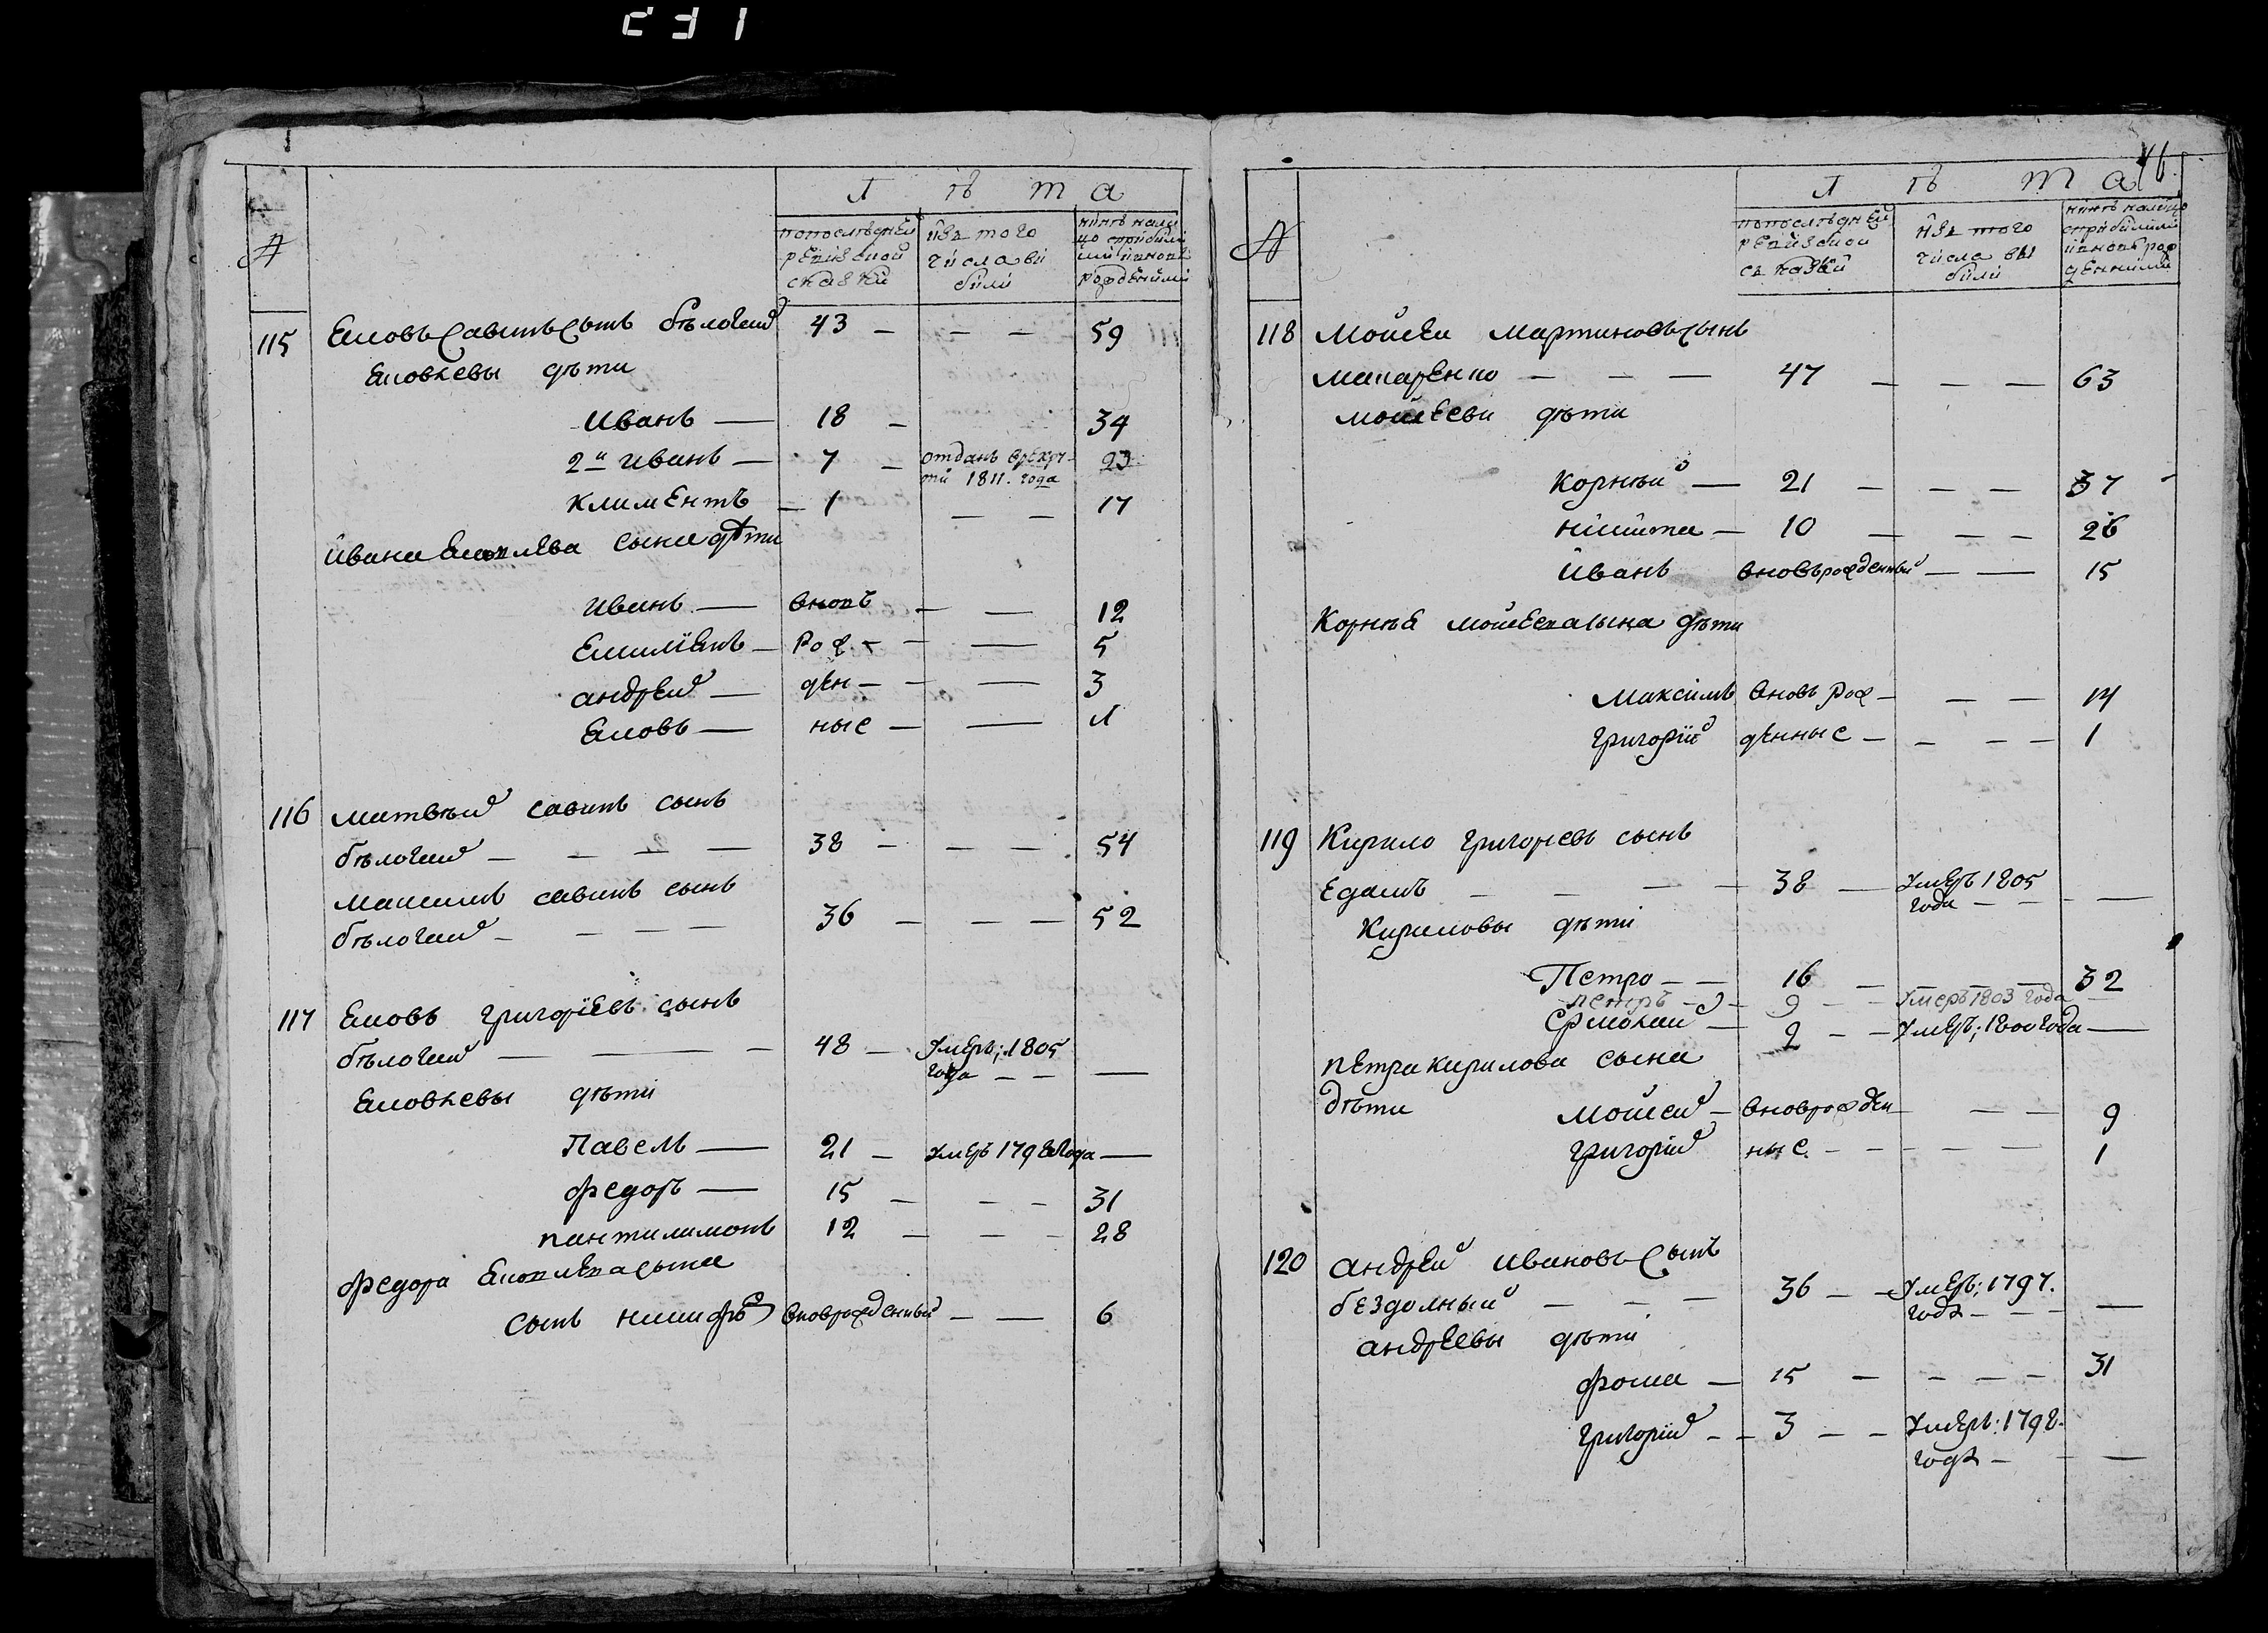 Л ѣ т а
№
попослѣдней ревизской сказки
изъ того числа выбили
нынѣ налицо
115 Яковъ Савинъ сынъ бѣлогаи 43 — — — 59
Яковлевы дѣти
Иванъ — 18 — 34
2й Иванъ — 7 — отданъ врекруты 1811. года 23
Климентъ — 1 — — 17
Ивана Яковлева сына дѣти
Иванъ — вновь — — 12
Емилїянъ — рож — — — 5
андрей — ден — — — 3
Яковъ — ные — —
116 матвѣй савинъ сынъ
бѣлогаи — — — — 38 — — — 54
максимъ савинъ сынъ
бѣлогаи — — — — 36 — — — 52
117 Яковъ григорїевъ сынъ
бѣлогаи — — — 48 — Умеръ; 1805
года — — —
Яковлевы дѣти
Павелъ — 21 — умеръ 1798 года —
федоръ — 15 — — — 31
пантилимонъ 12 — — — 28
федора Яковлева сына
сынъ никифоръ вновърожденный — — 6
Л ѣ т а
46.
№
попослѣдней ревизской сказки
изъ того числа выбили
нынѣ налицо
118 Мойсеи мартиновъ сынъ
макаренко — — — 47 — — — 63
мойсееви дѣти
Корнѣй — 21 — — — 37
никита — 10 — — — 26
Иванъ вновърожденный — — 15
Корнѣя мойсеева сына дѣти
Максимъ вновь рож — — — 14
григорїй денные — — — — 1
119 Кирило григорьевъ сынъ
Едамъ — — — — 38 — Умеръ 1805
года — — —
Кириловы дѣти
Петро — — 16 — — — 32
петръ — 9 — — Умеръ 1803 года
Ермолай — 2 — — Умеръ; 1800 года —
петра кирилова сына
дѣти мойсей — вноврожден — — — 9
григорїй ные — — — — — 1
120 андрей ивановъ сынъ
бездолный — — — 36 — — Умеръ; 1797.
года — — —
андреевы дѣти
фома — 15 — — — — — 31
григорїй — — 3 — — Умеръ: 1798.
года — — —